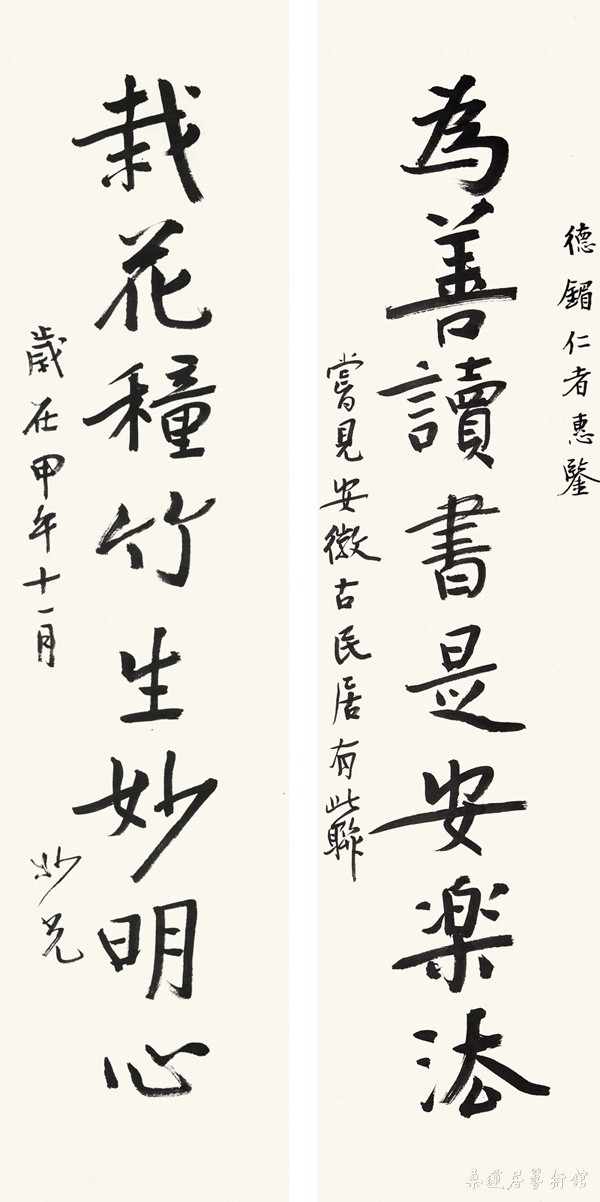 德鎇仁者惠鑒
為善讀書是安楽法
嘗見安徽古民居有此聯
栽花種竹生妙明心
歲在甲午十一月
妙光
蘂蓮居藝術館